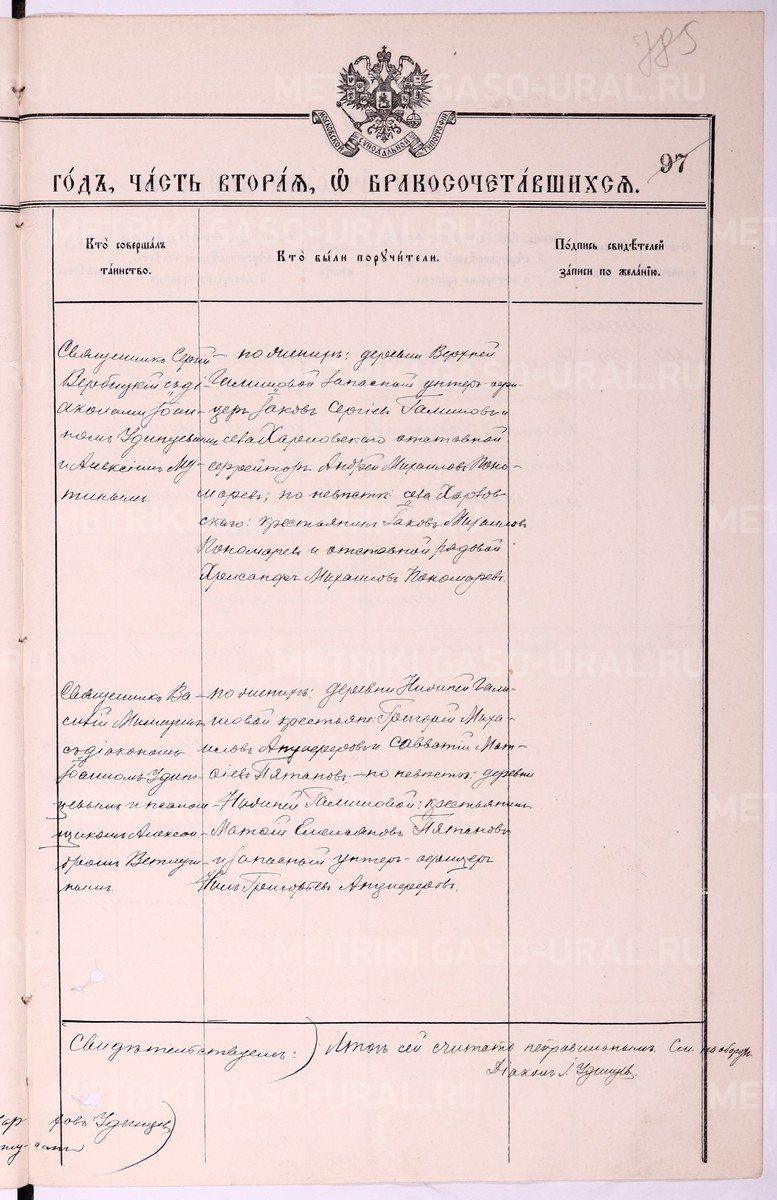 785
МОСКОВСКОЙ СУНОДАЛЬНОЙ ТИПОГРАФІИ
97
ГОДЪ, ЧАСТЬ ВТОРАЯ, Ѡ БРАКОСОЧЕТАВШИХСЯ.
Кто совершалъ таинство.
Кто были поручители.
Подпись свидѣтелей записи по желанію.
Священникъ Сергій
Вербицкій съ ді-
акономъ Іоан-
номъ Удинцевымъ
и Алексіемъ Му-
тинымъ.
по женихѣ: деревни Верхней
Галишовой запасной унтеръ-офи-
церъ Іаковъ Сергіевъ Галишовъ и
села Харловскаго отставной
ефрейторъ Андрей Михаиловъ Поно-
маревъ; по невѣстѣ: села Харлов-
скаго: крестьянинъ Іаковъ Михаиловъ
Пономаревъ и отставной рядовой
Александръ Михаиловъ Пономаревъ.
Священникъ Ва-
силій
съ діакономъ
Іоанномъ Удин-
цевымъ и псалом-
щикомъ Алексан-
дромъ Ветлуги-
нымъ.
по женихѣ: деревни Нижней Гали-
шовой крестьяне: Григорій Миха-
иловъ Анциферовъ и Савватій Мат-
ѳіевъ Пятановъ. — по невѣстѣ: деревни
Нижней Галишовой: крестьянинъ
Матѳій Емельяновъ Пятановъ
и запасный унтеръ-офицеръ
Нилъ Григорьевъ Анциферовъ.
Свидѣтельствуемъ:
Итогъ сей считать неправильнымъ. См. на обор.
Діаконъ І. Удинцевъ.
Удинцев
METRIKI.GASO-URAL.RU